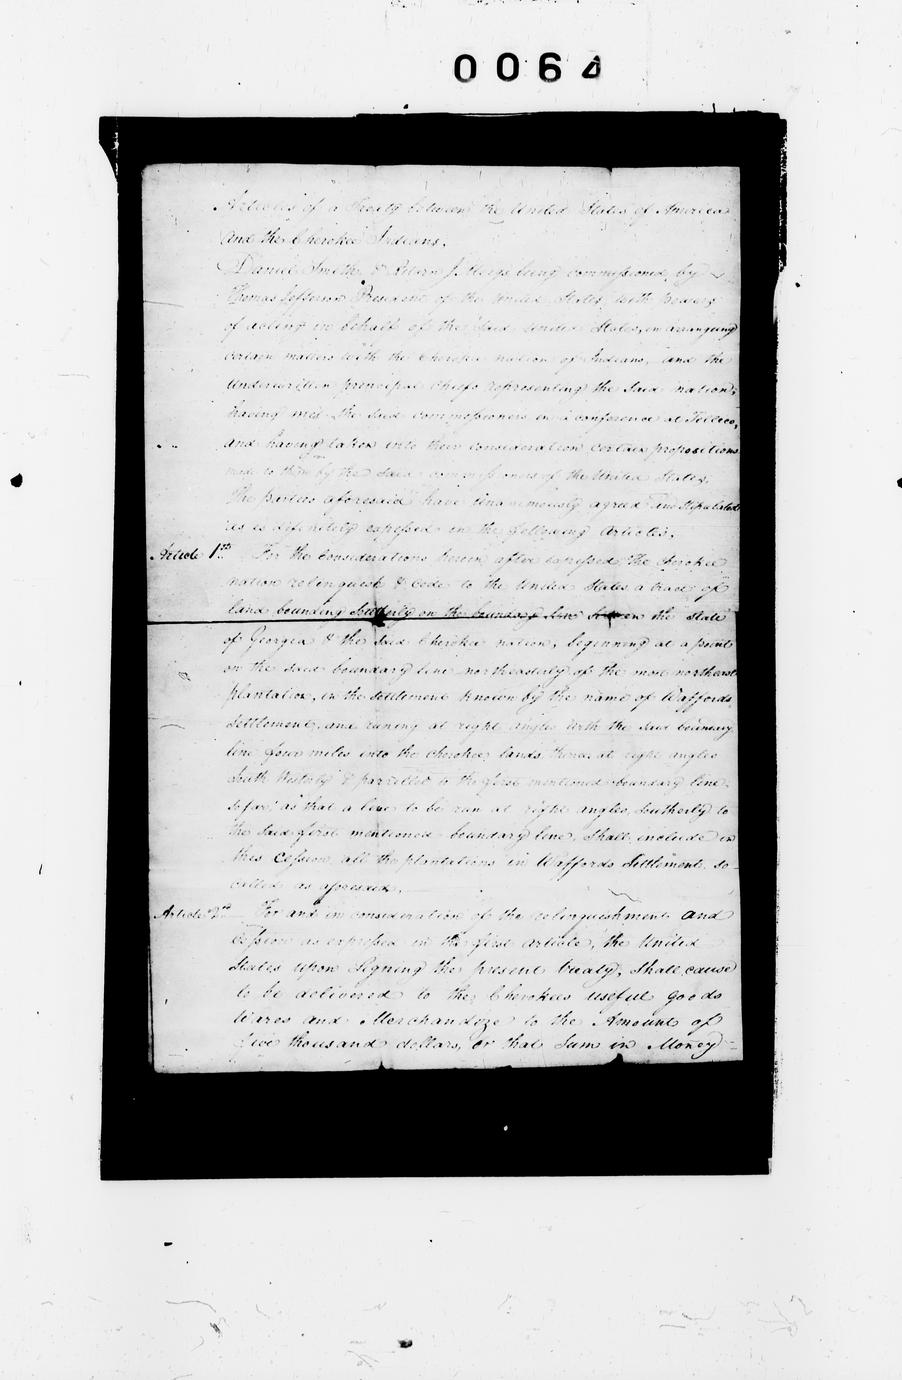 0064
Articles of a Treaty between the United States of America
and the Cherokee Indians.
Daniel Smith & Return J. Meigs being commissioned by
Thomas Jefferson President of the United States, with powers
of acting in behalf of the said United States, in arranging
certain matters with the Cherokee nation of Indians, and the
Underwritten principal Chiefs representing the said nation;
having met the said commissioners in a conference at Tellico,
and having taken into their consideration certain propositions
made to them by the said commissioners of the United States,
the parties aforesaid have unanimously agreed and stipulated
as is definitely expressed in the following Articles.
Article 1st For the Considerations herein after expressed, the Cherokee
nation relinquish & Cede to the United States a tract of
land bounding Southerly on the boundary line between the State
of Georgia & the said Cherokee nation, beginning at a point
on the said boundary line northeasterly of the most northeast
plantation, in the settlement known by the name of Waffords
Settlement, and runing at right angles with the said boundary
line four miles into the Cherokee lands, thence at right angles
South Westerly & parrellel to the first mentioned boundary line
so far as that a line to be run at right angles, Southerly to
the said first mentioned boundary line, shall include in
this Cession all the plantations in Waffords Settlement so
called as aforesaid.
Article 2nd For and in consideration of the relinquishment and
Cession as expressed in the first article, the United
States upon Signing the present treaty, Shall cause
to be delivered to the Cherokees useful goods
Wares and Merchandize to the Amount of
five thousand dollars, or that Sum in Money